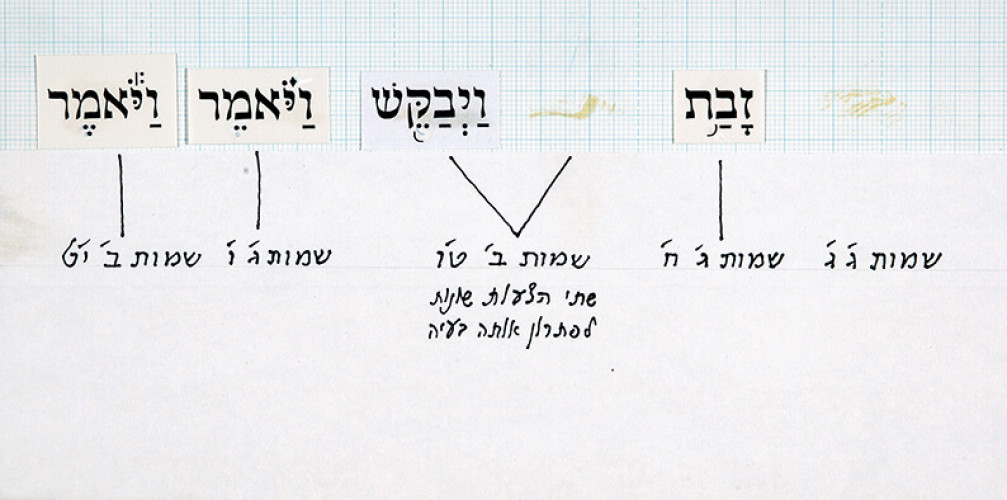 זָבַ֥ת וַיְבַקֵּ֖שׁ וַיֹּ֗אמֶר וַיֹּ֕אמֶר
שמות ג׳ ג׳ שמות ג׳ ח׳ שמות ב׳ ט״ו שמות ג׳ ו׳ שמות ב׳ י״ט
שתי הצעות שונות
לפתרון אותה בעיה